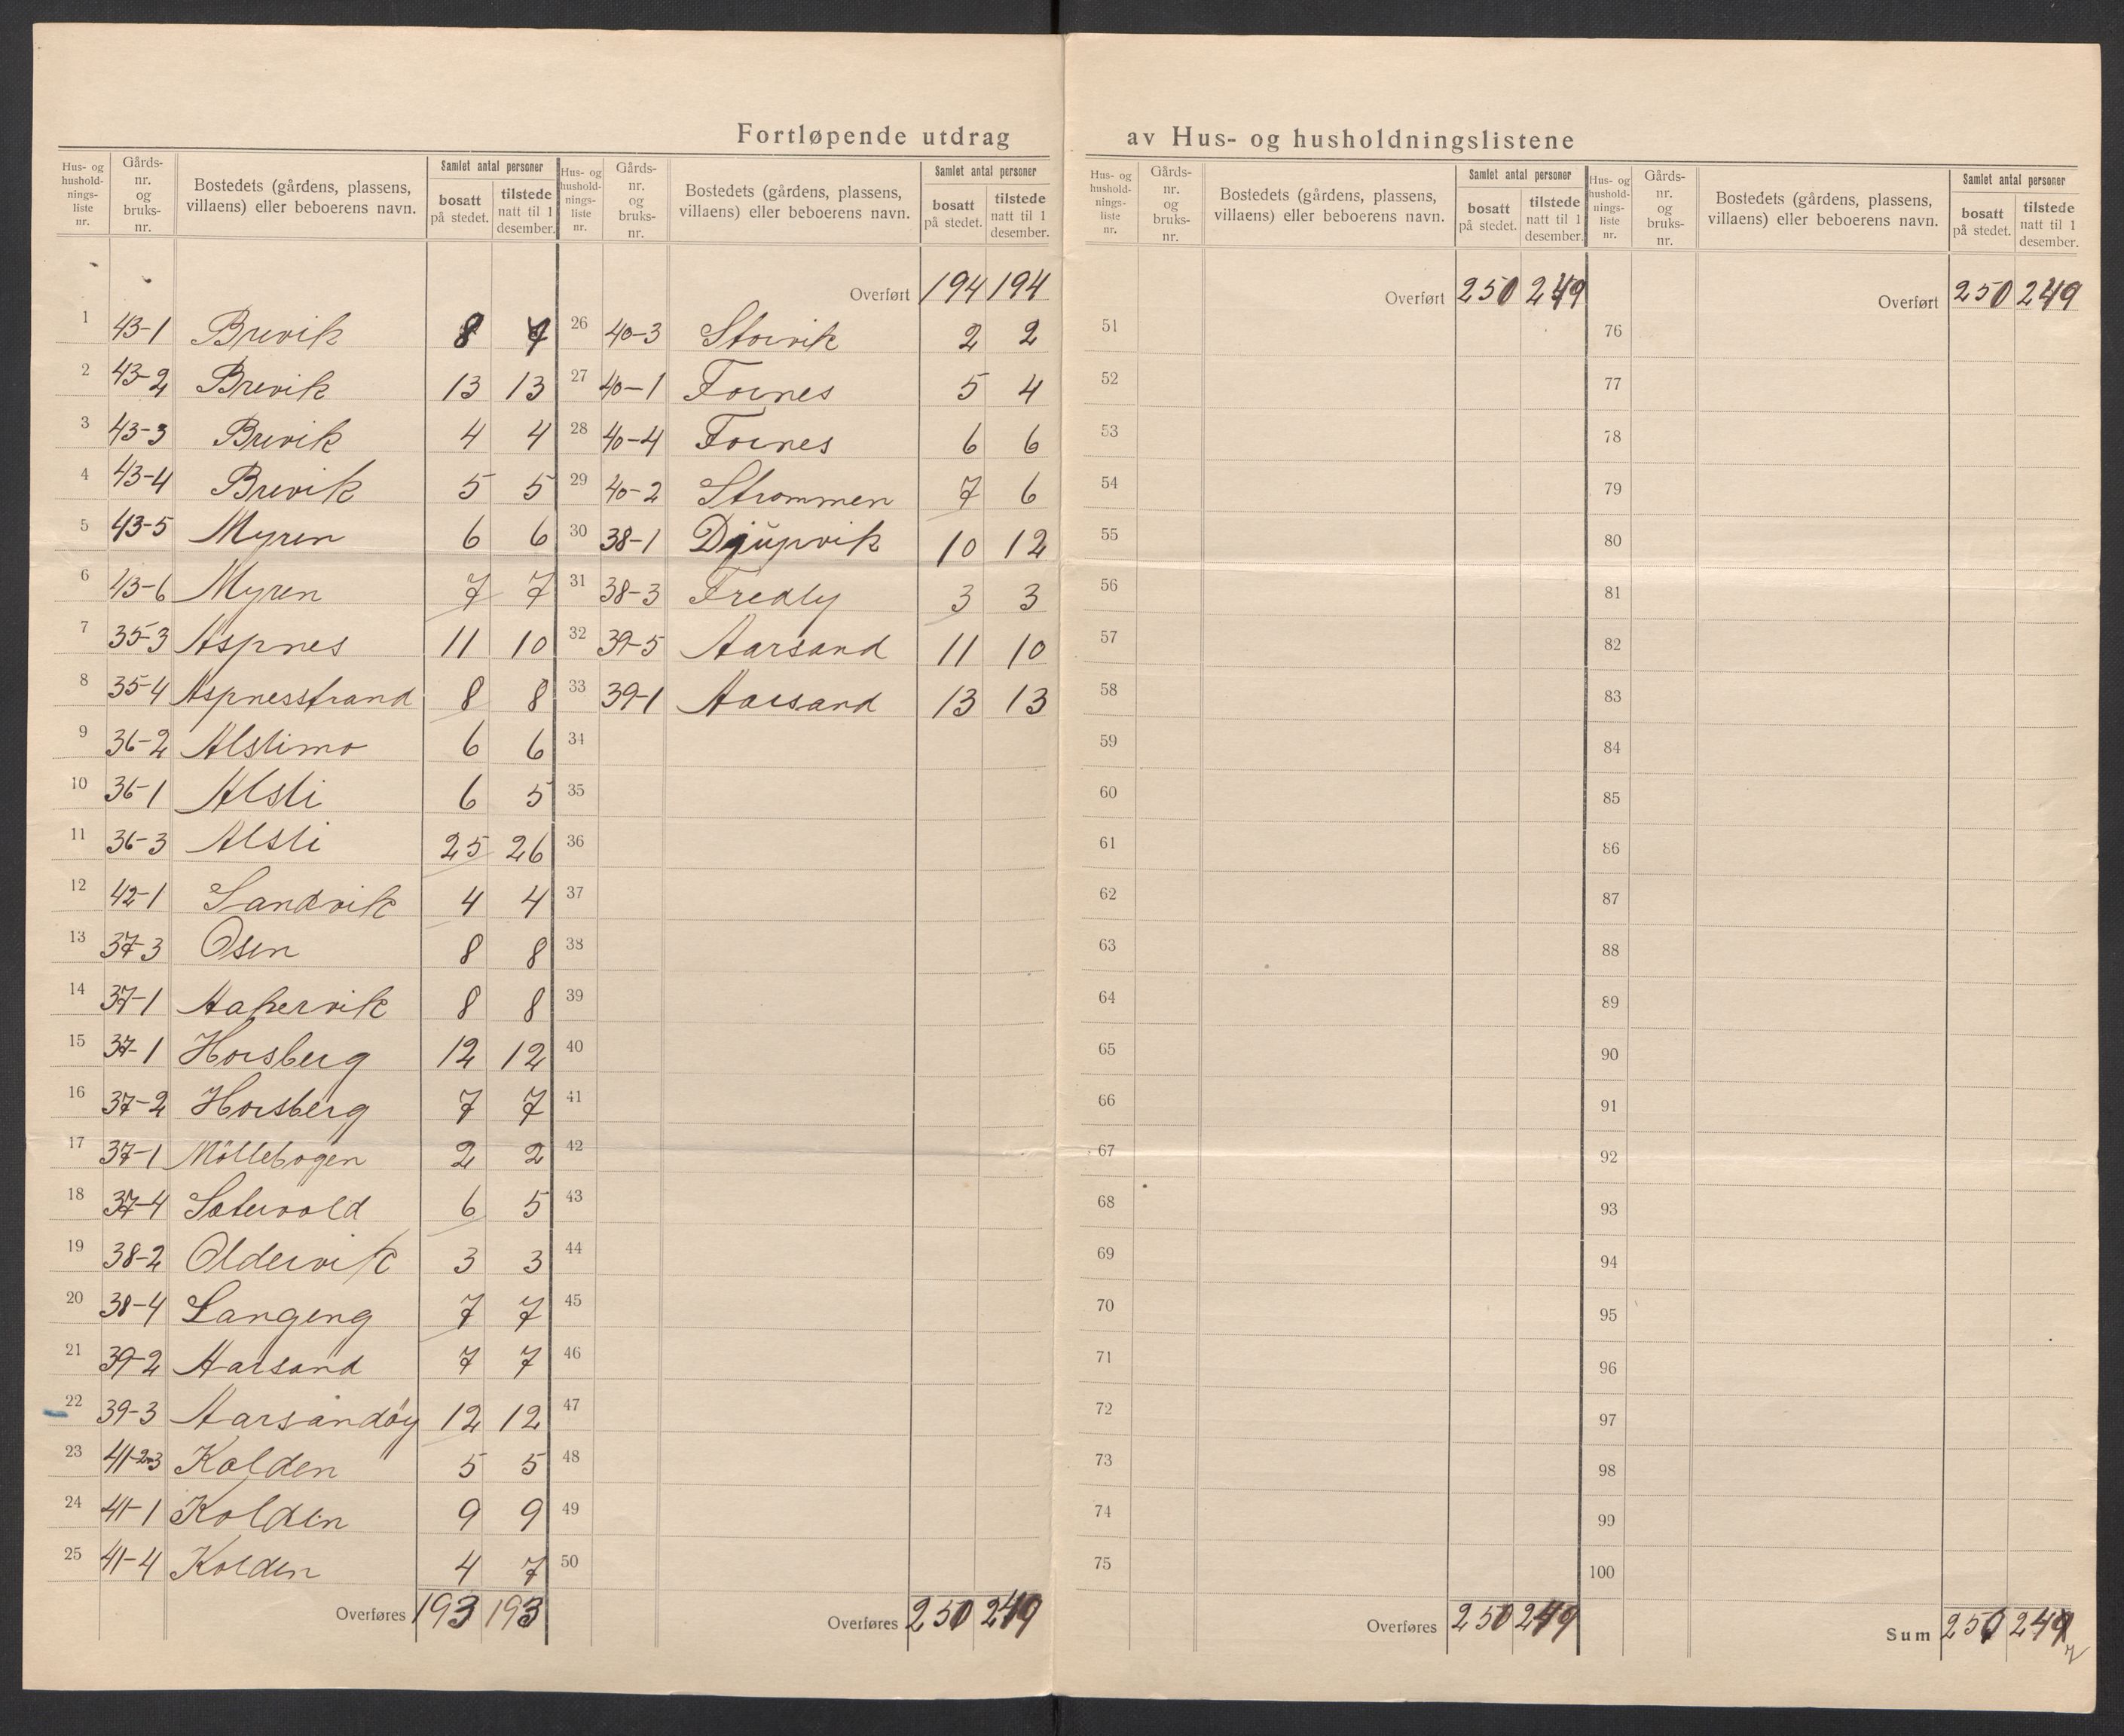 Fortløpende utdrag av Hus- og husholdningslistene
Hus- og hushold-nings-liste nr. Gårds-nr. og bruks-nr. Bostedets (gårdens, plassens, villaens) eller beboerens navn. Samlet antal personer bosatt på stedet. tilstede natt til 1 desember.
1 43-1 Brevik 8 7
2 43-2 Brevik 13 13
3 43-3 Brevik 4 4
4 43-4 Brevik 5 5
5 43-5 Myren 6 6
6 43-6 Myren 7 7
7 35-3 Aspnes 11 10
8 35-4 Aspnesstrand 8 8
9 36-2 Alslimo 6 6
10 36-1 Alsli 6 5
11 36-3 Alsli 25 26
12 42-1 Sandvik 4 4
13 37-3 Osen 8 8
14 37-1 Aakervik 8 8
15 37-1 Horsberg 12 12
16 37-2 Horsberg 7 7
17 37-1 Möllebogen 2 2
18 37-4 Setervold 6 5
19 38-2 Oldervik 3 3
20 38-4 Langeng 7 7
21 39-2 Aarsand 7 7
22 39-3 Aarsandöy 12 12
23 41-2og3 Kolden 5 5
24 41-1 Kolden 9 9
25 41-4 Kolden 4 7
Overføres 193 193
Hus- og hushold-nings-liste nr. Gårds-nr. og bruks-nr. Bostedets (gårdens, plassens, villaens) eller beboerens navn. Samlet antal personer bosatt på stedet. tilstede natt til 1 desember.
Overført 194 194
26 40-3 Storvik 2 2
27 40-1 Fornes 5 4
28 40-4 Fornes 6 6
29 40-2 Strommen 7 6
30 38-1 Djupvik 10 12
31 38-3 Fredly 3 3
32 39-5 Aarsand 11 10
33 39-1 Aarsand 13 13
34
35
36
37
38
39
40
41
42
43
44
45
46
47
48
49
50
Overføres 250 249
Hus- og hushold-nings-liste nr. Gårds-nr. og bruks-nr. Bostedets (gårdens, plassens, villaens) eller beboerens navn. Samlet antal personer bosatt på stedet. tilstede natt til 1 desember.
Overført 250 249
51
52
53
54
55
56
57
58
59
60
61
62
63
64
65
66
67
68
69
70
71
72
73
74
75
Overføres 250 249
Hus- og hushold-nings-liste nr. Gårds-nr. og bruks-nr. Bostedets (gårdens, plassens, villaens) eller beboerens navn. Samlet antal personer bosatt på stedet. tilstede natt til 1 desember.
Overført 250 249
76
77
78
79
80
81
82
83
84
85
86
87
88
89
90
91
92
93
94
95
96
97
98
99
100
Sum 250 249